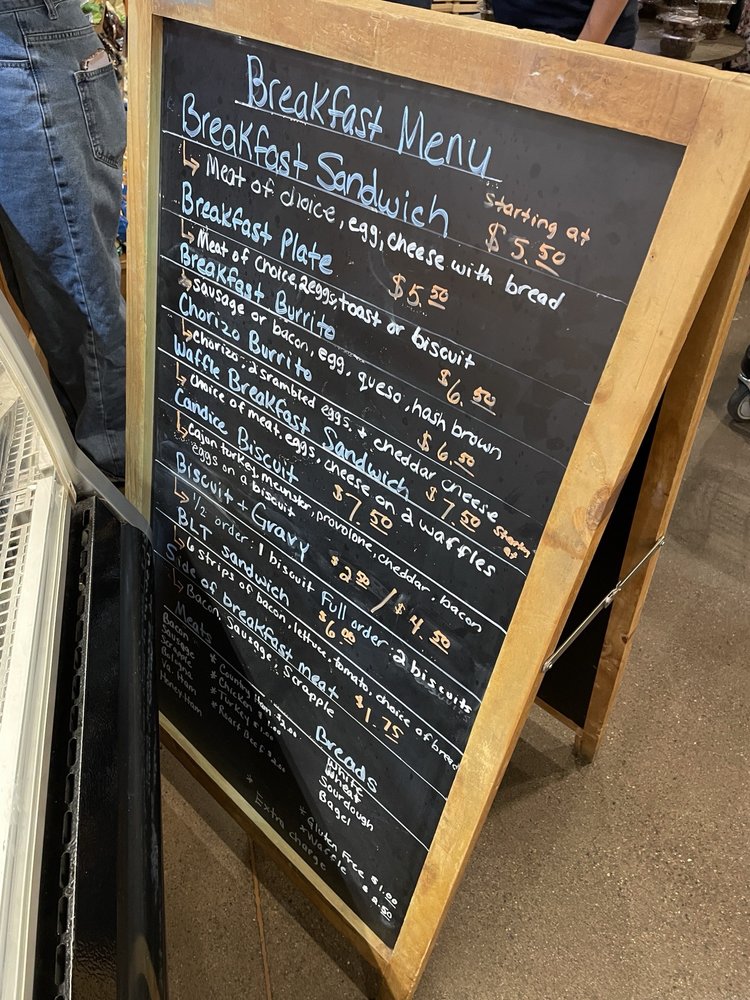 Breakfast Menu
Breakfast Sandwich starting at $5.50
Meat of choice, egg, cheese with bread
Breakfast Plate $5.50
Meat of choice, 2 eggs, toast or biscuit
Breakfast Burrito $6.50
sausage or bacon, egg, queso, hash brown
Chorizo Burrito $6.50
chorizo, 2 srambled eggs, + cheddar cheese
Waffle Breakfast Sandwich $7.50 starts at
choice of meat, eggs, cheese on 2 waffles
Candice Biscuit $7.50
cajon turkey, meunster, provolone, cheddar, bacon
eggs on a biscuit
Biscuit + Gravy $2.50 / $4.50
1/2 order: 1 biscuit Full order: 2 biscuits
BLT Sandwich $6.00
6 strips of bacon, lettuce, tomato, choice of bread
Side of breakfast meat $1.75
Bacon, Sausage, Scrapple
Meats
Bacon
Sausage
Scrapple
Bologna
Va. Ham
Honey Ham
* Country Ham $2.00
* Chicken
* Turkey $1.00
* Roast Beef $2.00
Breads
White
Wheat
Sourdough
Bagel
* Gluten Free $1.00
* Waffle $2.50
* Extra charge